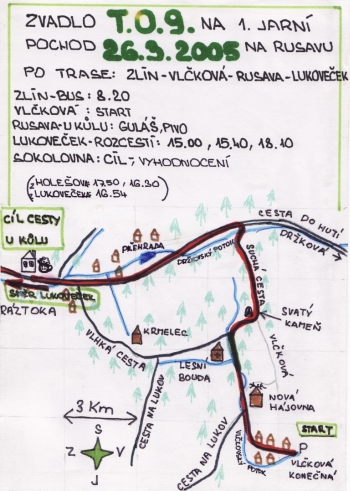 ZVADLO T.O.9. NA 1. JARNÍ
POCHOD 26.3.2005 NA RUSAVU
PO TRASE: ZLÍN-VLČKOVÁ-RUSAVA-LUKOVEČEK
ZLÍN-BUS: 8.20
VLČKOVÁ : START
RUSAVA-U KŮLU: GULÁŠ, PIVO
LUKOVEČEK-ROZCESTÍ: 15.00, 15.40, 18.10
SOKOLOVNA: CÍL-, VYHODNOCENÍ
(Z HOLEŠOV: 17.50, 16.30)
(LUKOVEČEK 16.54)
CÍL CESTY
U KŮLU
CESTA DO HUTÍ
DRŽKOVÁ
PŘEHRADA
DRŽKOVSKÝ POTOK
SUCHÁ CESTA
SMĚR LUKOVEČEK
RÁZTOKA
SVATÝ
KAMEŇ
KRMELEC
VLHKÁ CESTA
VLČKOVÁ
LESNÍ
BOUDA
NOVÁ
HÁJOVNA
3 Km
CESTA NA LUKOV
CESTA NA LUKOV
S
Z V
J
START
P
VLČKOVSKÝ
POTOK
VLČKOVÁ
KONEČNÁ